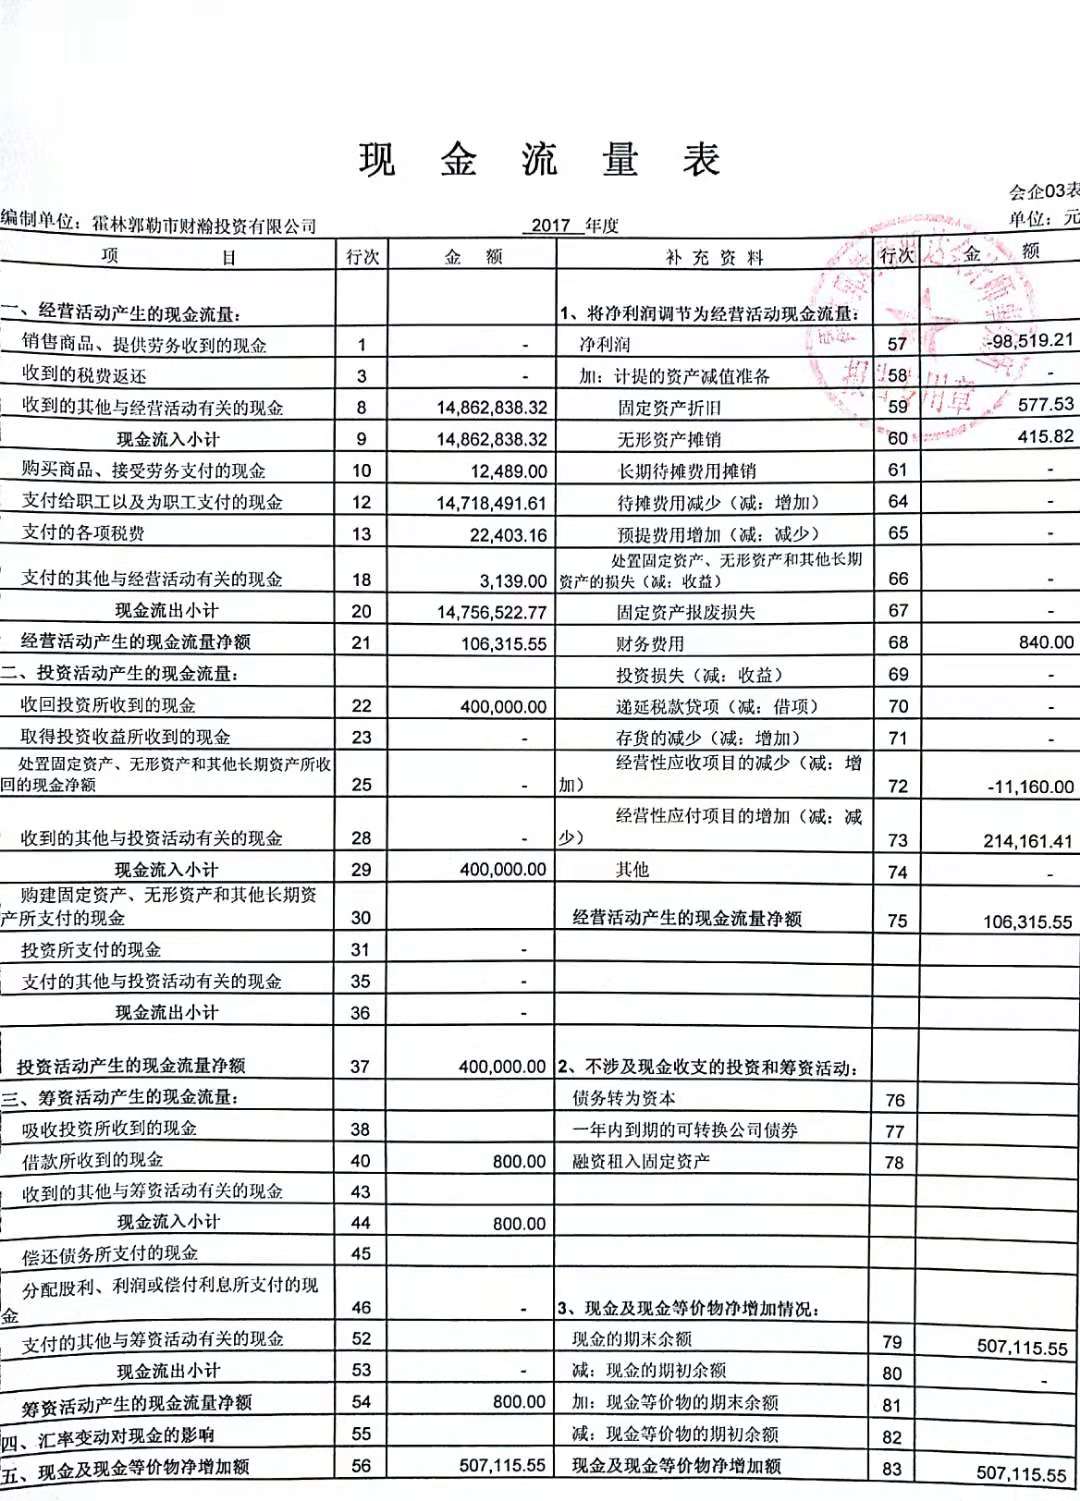 现 金 流 量 表
会企03表
编制单位：霍林郭勒市财瀚投资有限公司 2017 年度 单位：元
项 目 行次 金 额 补 充 资 料 行次 金 额
一、经营活动产生的现金流量： 1、将净利润调节为经营活动现金流量：
销售商品、提供劳务收到的现金 1 - 净利润 57 -98,519.21
收到的税费返还 3 - 加：计提的资产减值准备 58 -
收到的其他与经营活动有关的现金 8 14,862,838.32 固定资产折旧 59 577.53
现金流入小计 9 14,862,838.32 无形资产摊销 60 415.82
购买商品、接受劳务支付的现金 10 12,489.00 长期待摊费用摊销 61 -
支付给职工以及为职工支付的现金 12 14,718,491.61 待摊费用减少（减：增加） 64 -
支付的各项税费 13 22,403.16 预提费用增加（减：减少） 65 -
支付的其他与经营活动有关的现金 18 3,139.00 处置固定资产、无形资产和其他长期
资产的损失（减：收益） 66 -
现金流出小计 20 14,756,522.77 固定资产报废损失 67 -
经营活动产生的现金流量净额 21 106,315.55 财务费用 68 840.00
二、投资活动产生的现金流量： 投资损失（减：收益） 69 -
收回投资所收到的现金 22 400,000.00 递延税款贷项（减：借项） 70 -
取得投资收益所收到的现金 23 - 存货的减少（减：增加） 71 -
处置固定资产、无形资产和其他长期资产所收 经营性应收项目的减少（减：增
回的现金净额 25 - 加） 72 -11,160.00
经营性应付项目的增加（减：减
收到的其他与投资活动有关的现金 28 - 少） 73 214,161.41
现金流入小计 29 400,000.00 其他 74 -
购建固定资产、无形资产和其他长期资
产所支付的现金 30 经营活动产生的现金流量净额 75 106,315.55
投资所支付的现金 31 -
支付的其他与投资活动有关的现金 35 -
现金流出小计 36 -
投资活动产生的现金流量净额 37 400,000.00 2、不涉及现金收支的投资和筹资活动：
三、筹资活动产生的现金流量： 债务转为资本 76
吸收投资所收到的现金 38 一年内到期的可转换公司债券 77
借款所收到的现金 40 800.00 融资租入固定资产 78
收到的其他与筹资活动有关的现金 43
现金流入小计 44 800.00
偿还债务所支付的现金 45
分配股利、利润或偿付利息所支付的现
金 46 - 3、现金及现金等价物净增加情况：
支付的其他与筹资活动有关的现金 52 现金的期末余额 79 507,115.55
现金流出小计 53 - 减：现金的期初余额 80 -
筹资活动产生的现金流量净额 54 800.00 加：现金等价物的期末余额 81
四、汇率变动对现金的影响 55 减：现金等价物的期初余额 82
五、现金及现金等价物净增加额 56 507,115.55 现金及现金等价物净增加额 83 507,115.55